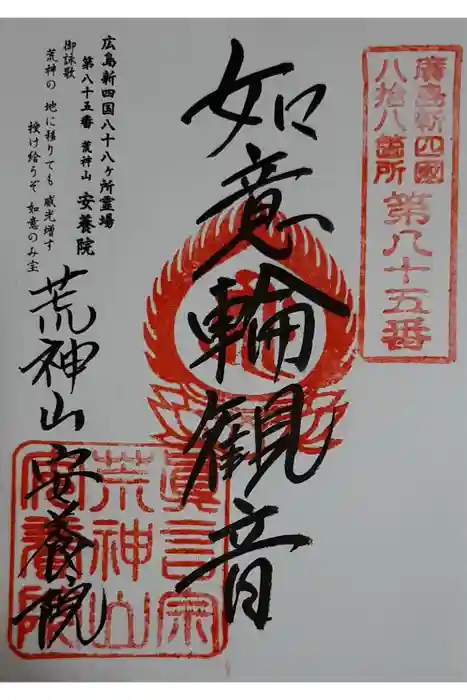 廣島新四國
八拾八箇所
第八十五番
如意輪観音
広島新四国八十八ヶ所霊場
第八十五番 荒神山 安養院
御詠歌
荒神の 地に移りても 威光増す
授け給うぞ 如意のみ宝
荒神山 安養院
眞言宗
荒神山
安養院